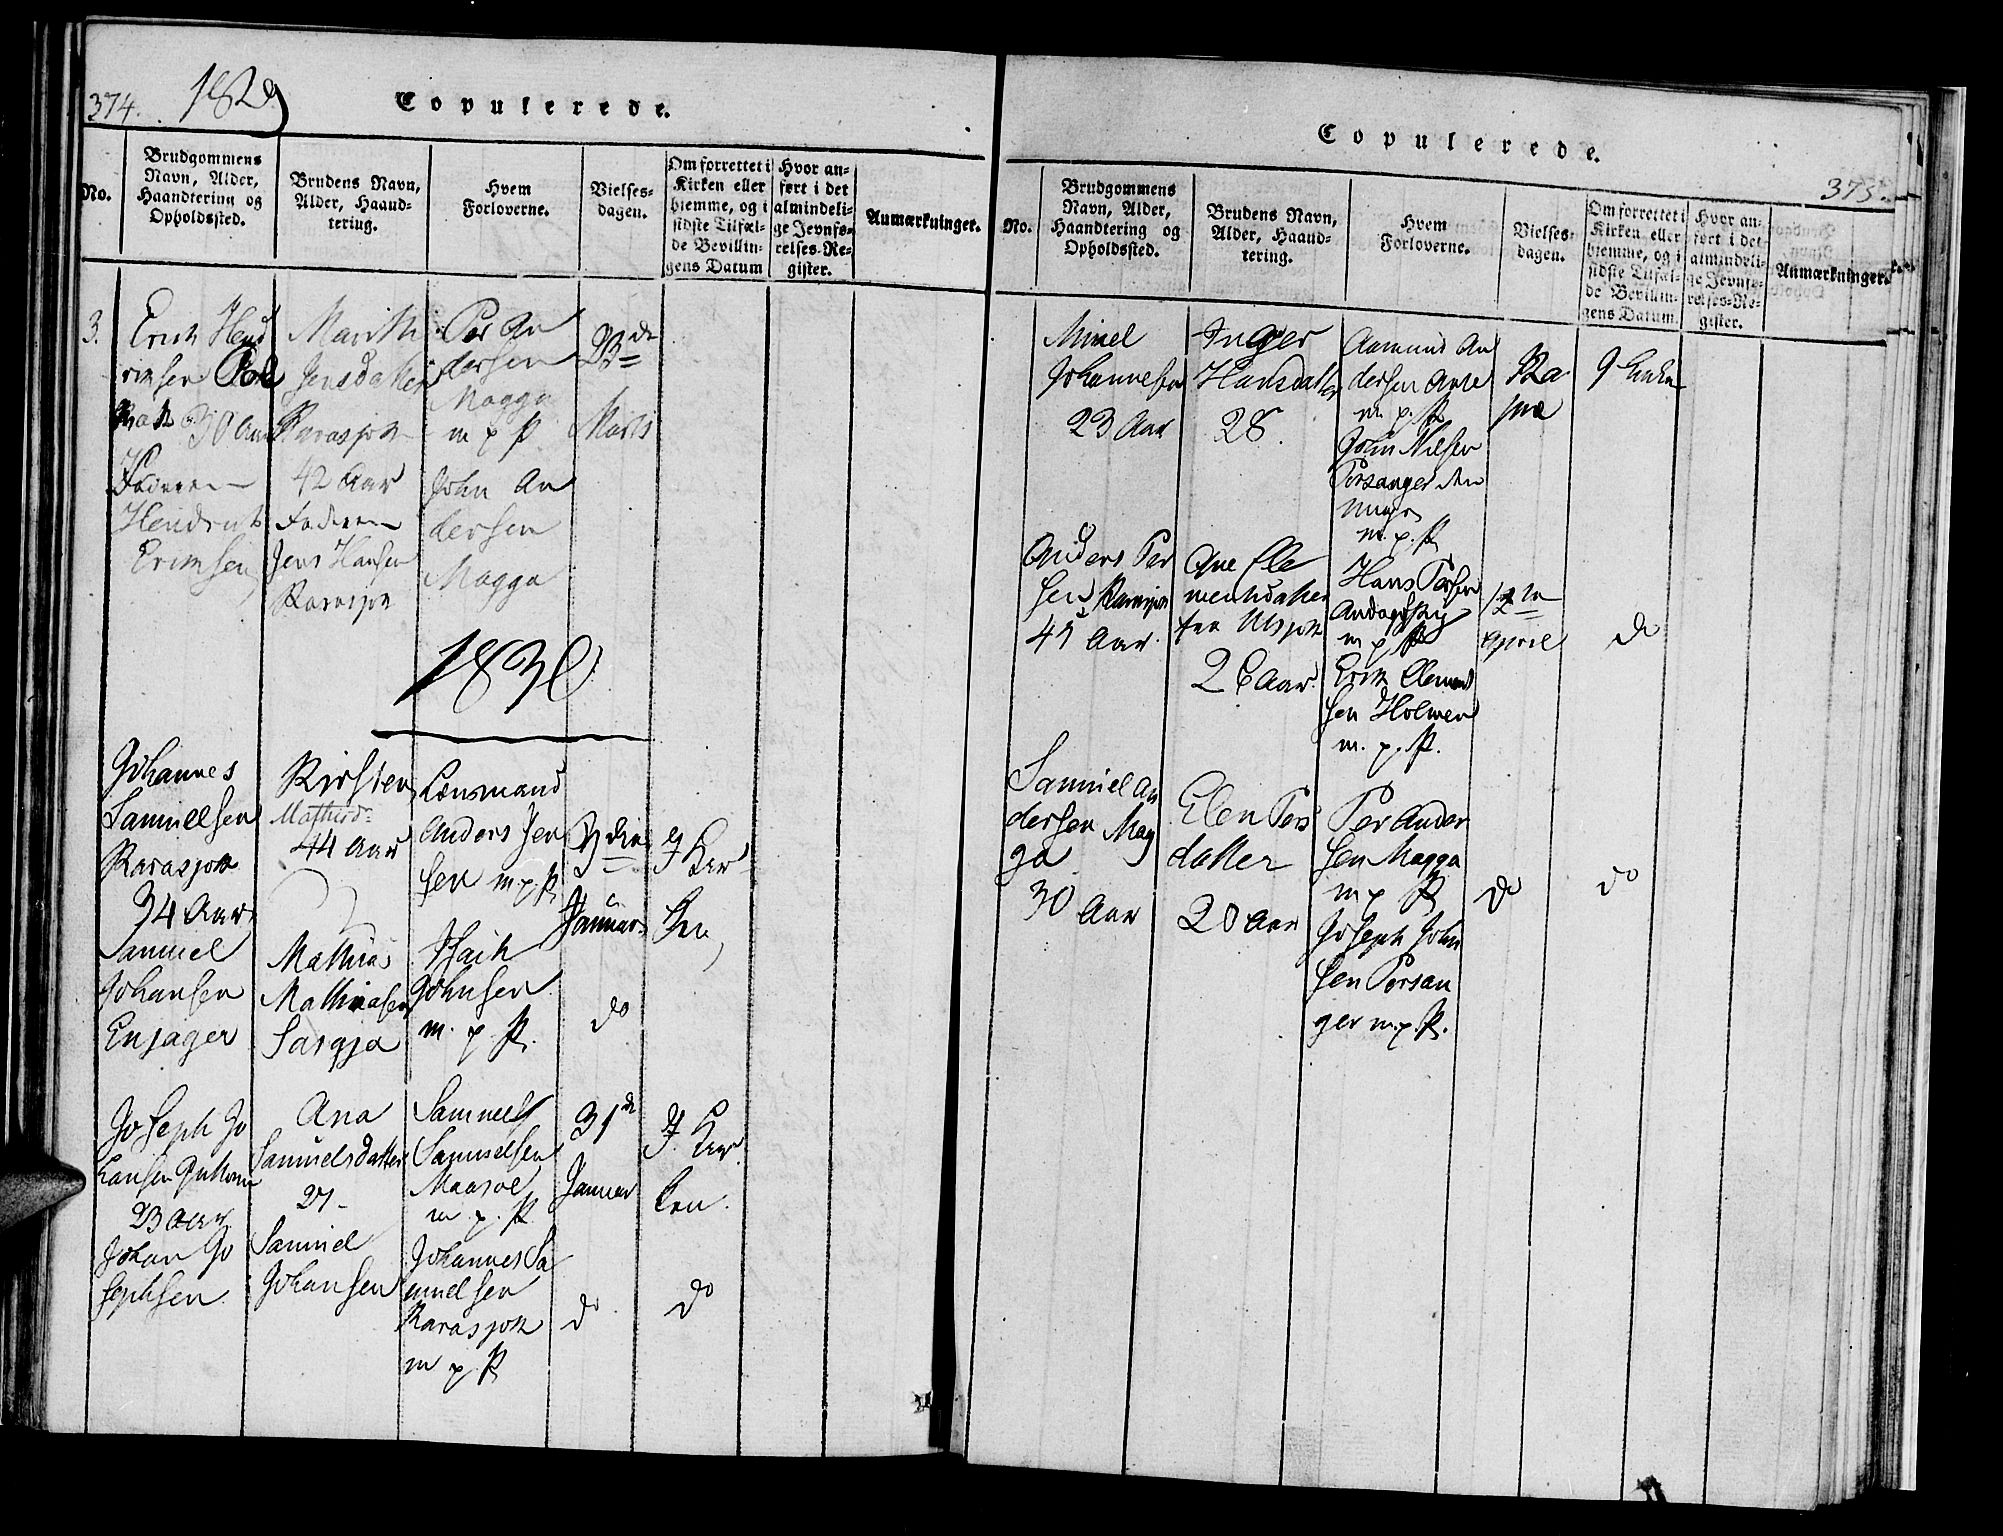 374. 1829
Copulerede.
No.
Brudgommens
Navn, Alder,
Haandtering og
Opholdssted.
Brudens Navn,
Alder, Haand-
tering.
Hvem
Forloverne.
Vielses-
dagen.
Om forrettet i
Kirken eller
hjemme, og i
sidste Tilfæl-
de Bevillin-
gens Datum
Hvor an-
ført i det
almindeli-
ge Jevnfø-
relses-Re-
gister.
Anmærkninger.
3.
Erich Hend
riksen
30 Aar
Faderen
Hendrik
Eriksen
Marith
Jensdatter
Karasjok
42 Aar
Faderen
Jens Hansen
Karasjok
Per An
dersen
Magga
m p P
John An
dersen
Magga
23de
Marts
1830
Johannes
Samuelsen
Karasjok
34 Aar
Samuel
Johansen
Enjager
Kirsten
Mathisd-
44 Aar
Mathias
Mathiasen
Sargja
Lensmand
Anders Jen
sen m.p.P.
Isaik
Johnsen
m. p. P.
Januar
do
I Kir
ken
Joseph Jo
hansen
23 Aar
Johan Jo
sephsen
Ana
Samuelsdatter
27-
Samuel
Johansen
Samuel
Samuelsen
Maasoe
m. p. P.
Johannes Sa
muelsen
Karasjok
m p. P
31de
Januar
do
I Kir
ken.
do
Copulerede.
375.
No.
Brudgommens
Navn, Alder,
Haandtering og
Opholdssted.
Brudens Navn,
Alder, Haand-
tering.
Hvem
Forloverne.
Vielses-
dagen.
Om forrettet i
Kirken eller
hjemme, og i
sidste Tilfæl-
de Bevillin-
gens Datum.
Hvor an-
ført i det
almindeli-
ge Jevnfø-
relses-Re-
gister.
Anmærkninger.
Mikel
Johannesen
23 Aar
Inger
Hansdatter
28.
Aamund An
dersen
m. p. P.
John Nilsen
Porsanger
m. p. P.
Anders Per
sen Karasjok
Aar.
Ane Cle
mentsdatter
fra Utsjok
26 Aar.
Hans Persen
m p P
Erik Clemend
sen Holmen
m. p. P.
12te
April
do
Samuel An
dersen Mag
ga
30 Aar
Elen Pers
datter
20 Aar
Per Ander
sen Magga
m p P
Joseph John
sen Porsan
ger m.p.P.
do
do